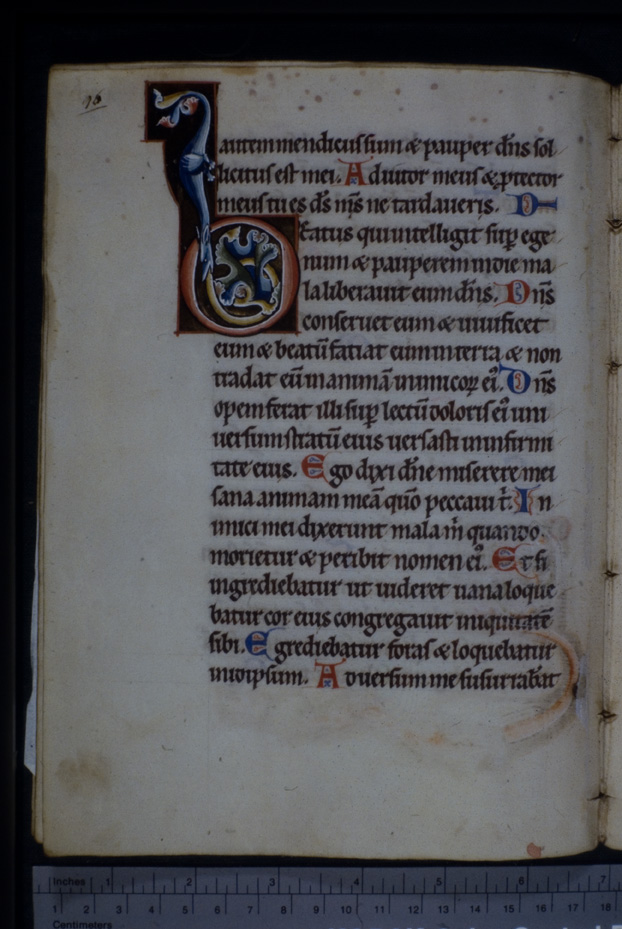 76
autem mendicus sum & pauper dn̄s sol
licitus est mei. Adiutor meus & ꝓtector
meus tu es ds̄ m̄s ne tardaveris. D
Eatus qui intelligit sup̄ ege
num & pauperem in die ma
la liberauit eum dn̄s. Dn̄s
conseruet eum & uiuificet
eum & beatū faciat eum in terra & non
tradat eū in animā inimicoꝝ eiꝰ. Dn̄s
opem ferat illi sup̄ lectū doloris eiꝰ uni
uersum stratū eius uersasti in infirmi
tate eius. Ego dixi dn̄e miserere mei
sana animam meā quō peccaui t̄. In
imici mei dixerunt mala m̄ quando
morietur & peribit nomen eiꝰ. Et si
ingrediebatur ut uideret uana loque
batur cor eius congregauit iniquitatē
sibi. Egrediebatur foras & loquebatur
in idipsum. Aduersum me susurrabāt
Inches 1 2 3 4 5 6 7
1 2 3 4 5 6 7 8 9 10 11 12 13 14 15 16 17 18
Centimeters